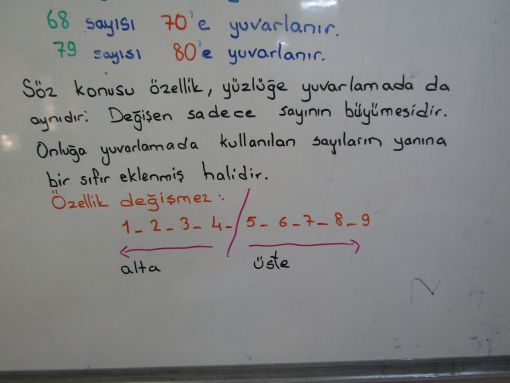 68 sayısı 70'e yuvarlanır.
79 sayısı 80'e yuvarlanır.
Söz konusu özellik, yüzlüğe yuvarlamada da
aynıdır. Değişen sadece sayının büyümesidir.
Onluğa yuvarlamada kullanılan sayıların yanına
bir sıfır eklenmiş halidir.
Özellik değişmez:
1_2_3_4_/5_6_7_8_9
alta üste